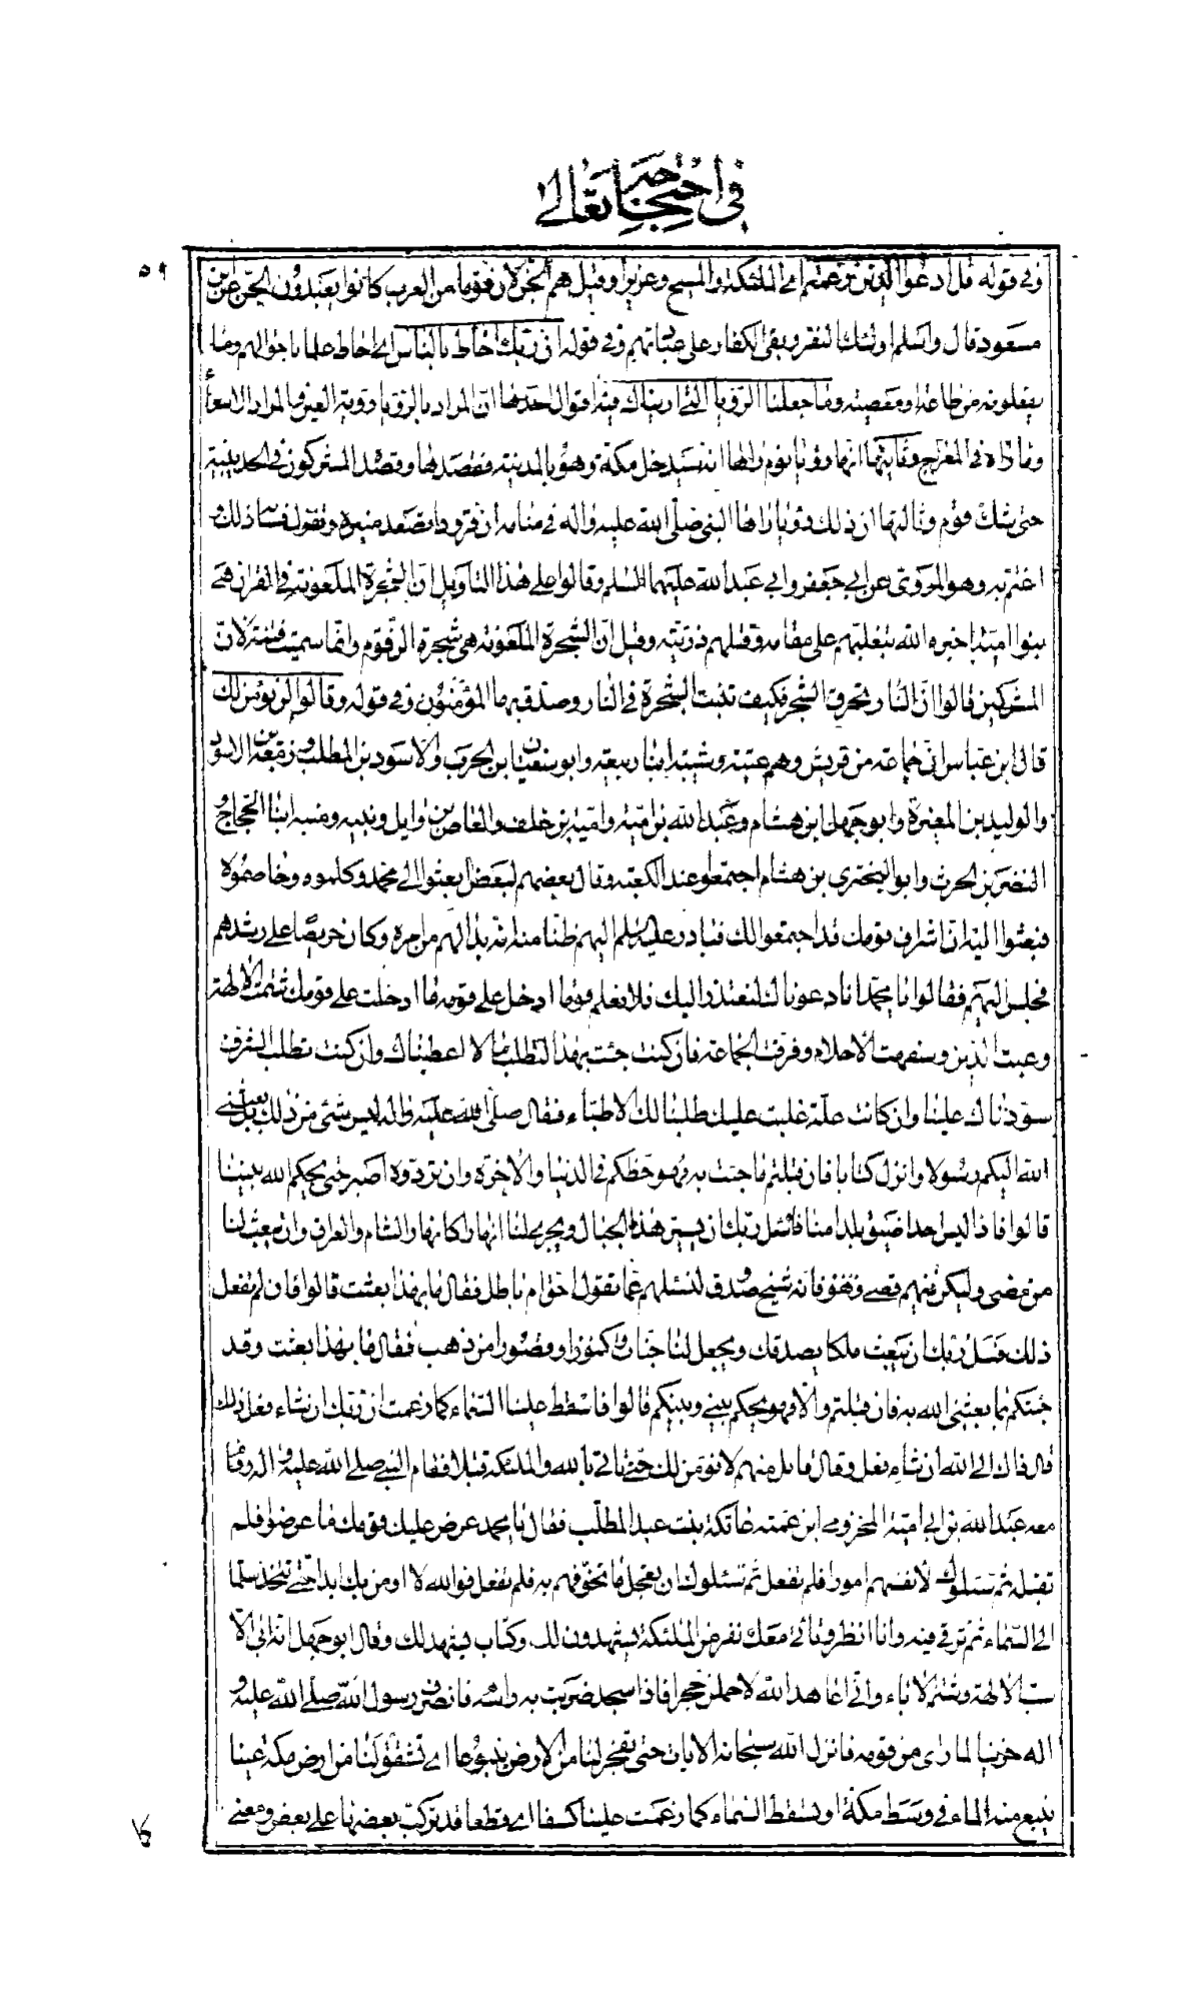 في احتجاجه تعالى
٥٩
وفي قوله قل ادعوا الذين زعمتم اي الملئكة والمسيح وعزيرا وقيل هم الجن لان قوما من العرب كانوا يعبدون الجن عن بن
مسعود قال واسلم اولئك النفر وبقي الكفار على عباتهم وفي قوله ان ربك احاط بالناس اي احاط علما باحوالهم وما
يفعلونه من طاعة او معصية وما جعلنا الرؤيا التي اريناك فيه اقوال احدها ان المراد بالرؤيا رؤية العين والمراد الاسراء
وما راه في المعراج وثانيها انها رؤيا نوم راها انه سيدخل مكة وهو بالمدينة فقصدها وقصد المشركون في الحديبية
حتى شك قوم وثالثها ان ذلك رؤيا راها النبي صلى الله عليه واله في منامه ان قرودا تصعد منبره وتنزل فساءه ذلك و
اغتم به وهو المروي عن ابي جعفر وابي عبد الله عليهما السلم وقالوا على هذا التاويل ان الشجرة الملعونة في القران هي
بنوا امية اخبره الله بتغلبهم على مقامه وقتلهم ذريته وقيل ان الشجرة الملعونة هي شجرة الزقوم وانما سميت فتنة لان
المشركين قالوا ان النار تحرق الشجر فكيف تنبت الشجرة في النار وصدق بها المؤمنون وفي قوله وقالوا لن نؤمن لك
قال ابن عباس ان جماعة من قريش وهم عتبة وشيبة ابنا ربيعة وابو سفيان ابن الحرب والاسود بن المطلب وزمعة بن الاسود
والوليد بن المغيرة وابو جهل ابن هشام وعبد الله بن امية وامية بن خلف والعاص بن وايل ونبيه ومنبه ابنا الحجاج و
النضر بن الحرث وابو البختري بن هشام اجتمعوا عند الكعبة وقال بعضهم لبعض ابعثوا الى محمد وكلموه وخاصموه
فبعثوا اليه ان اشراف قومك قد اجتمعوا لك فبادر عليه السلم اليهم ظنا منه انه بدا لهم من امره وكان حريصا على رشدهم
فجلس اليهم فقالوا يا محمد انا دعوناك لنعتذر اليك فلا نعلم قوما ادخل على قومه ما ادخلت على قومك شتمت الالهة
وعبت الدين وسفهت الاحلام وفرقت الجماعة فان كنت جئت بهذا لتطلب مالا اعطيناك وان كنت تطلب الشرف
سودناك علينا وان كانت علة غلبت عليك طلبنا لك الاطباء فقال صلى الله عليه واله ليس شئ من ذلك بل بعثني
الله اليكم رسولا وانزل كتابا فان قبلتم ما جئت به فهو حظكم في الدنيا والاخرة وان تردوه اصبر حتى يحكم الله بيننا
قالوا فاذا ليس احد اضيق بلدا منا فاسئل ربك ان يسير هذه الجبال ويجري لنا انهارا كانهار الشام والعراق وان يبعث لنا
من مضى وليكن منهم قصي فهو فانه شيخ صدوق لنسئلهم عما تقول احق ام باطل فقال ما بهذا بعثت قالوا فان لم تفعل
ذلك فسئل ربك ان يبعث ملكا يصدقك ويجعل لنا جنات وكنوزا وقصورا من ذهب فقال ما بهذا بعثت وقد
جئتكم بما بعثني الله به فان قبلتم والا فهو يحكم بيني وبينكم قالوا فاسقط علينا السماء كما زعمت ان ربك ان شاء فعل ذلك
قال ذاك الى الله ان شاء فعل وقال قائل منهم لا نؤمن لك حتى تاتي بالله والملئكة قبيلا فقام النبي صلى الله عليه واله وقام
معه عبد الله بن ابي امية المخزومي ابن عمته عاتكة بنت عبد المطلب فقال يا محمد عرض عليك قومك ما عرضوا فلم
تقبله ثم سئلوك لانفسهم امورا فلم تفعل ثم سئلوك ان تعجل ما تخوفهم به فلم تفعل فوالله لا اومن بك ابدا حتى تتخذ سلما
الى السماء ثم ترقى فيه وانا انظر وتاتي معك نفر من الملئكة يشهدون لك وكتاب يشهد لك وقال ابو جهل انه ابى الا
سب الالهة وشتم الاباء واني اعاهد الله لاحملن حجرا فاذا سجد ضربت به راسه فانصرف رسول الله صلى الله عليه و
اله حزينا لما راى من قومه فانزل الله سبحانه الايات حتى تفجر لنا من الارض ينبوعا اي تشقق لنا من ارض مكة عينا
ينبع منه الماء في وسط مكة او تسقط السماء كما زعمت علينا كسفا اي قطعا قد تركب بعضها على بعض ومعنى
كما